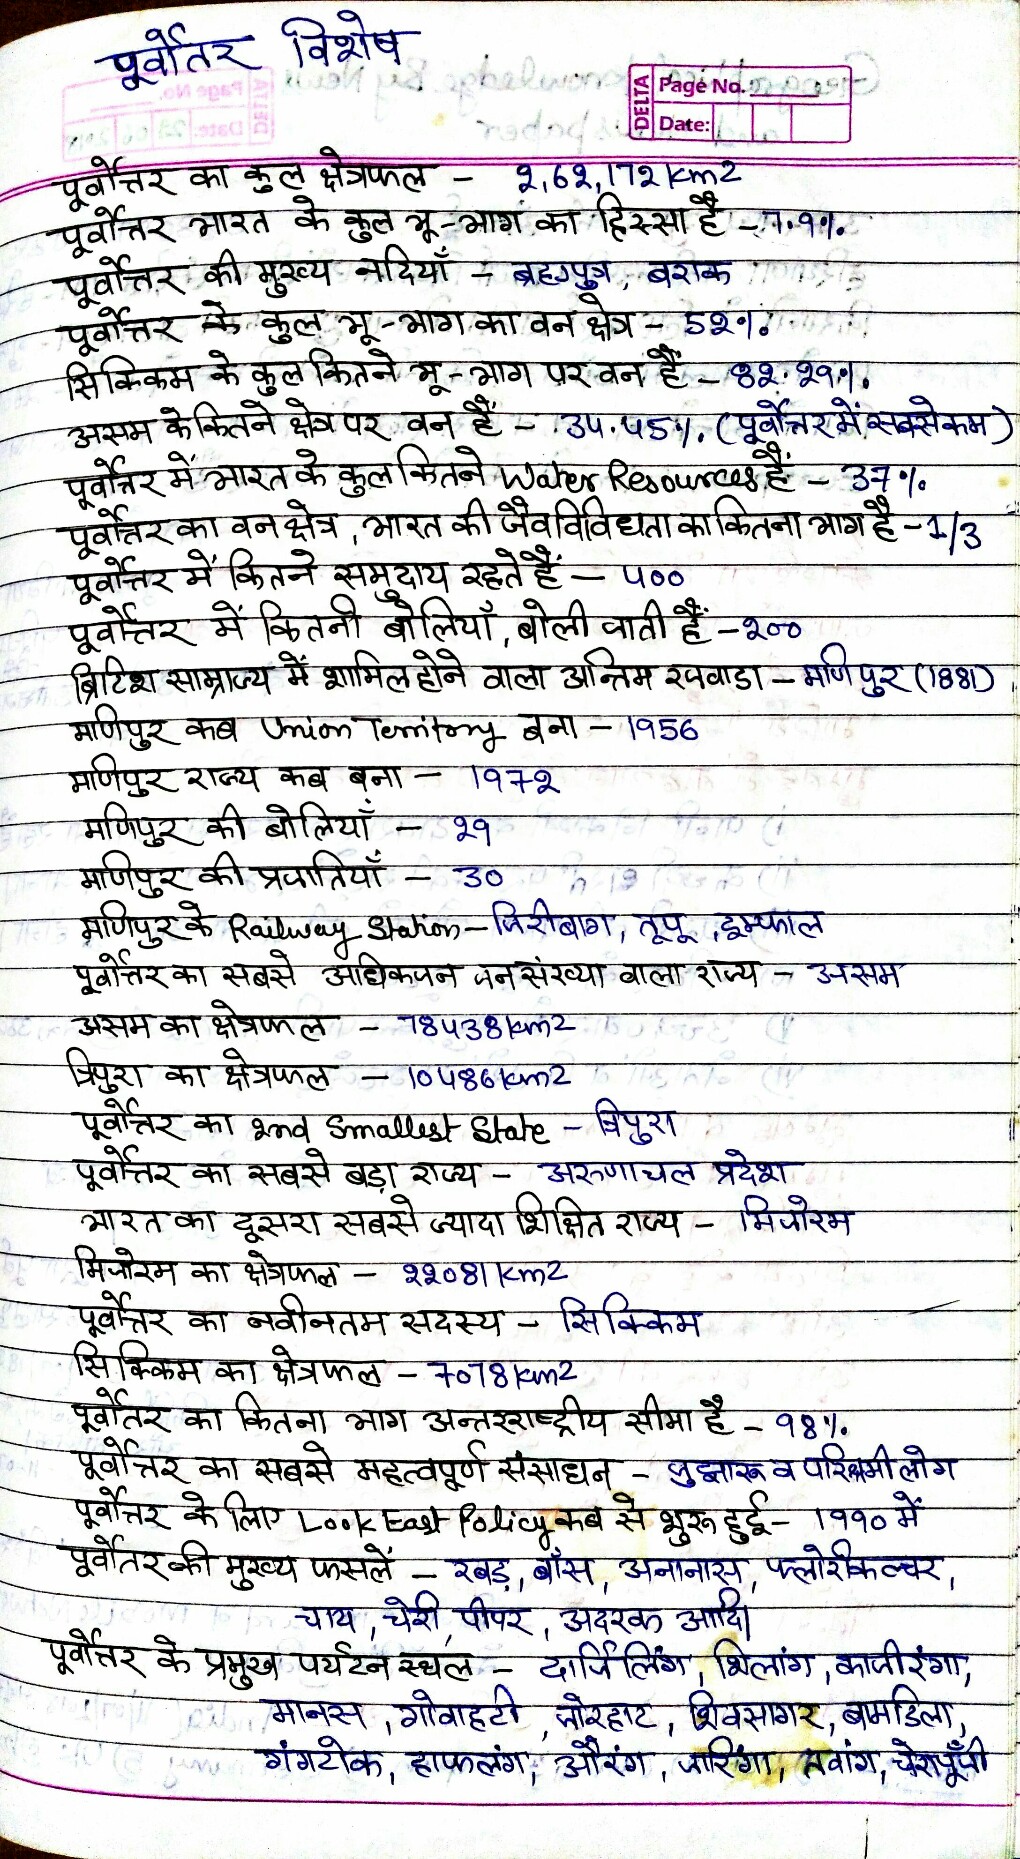 पूर्वोतर विशेष
DELTA
Page No.
Date:
पूर्वोत्तर का कुल क्षेत्रफल - 2,62,172 km2
पूर्वोत्तर भारत के कुल भू-भाग का हिस्सा है - 7.9%.
पूर्वोत्तर की मुख्य नदियाँ - ब्रह्मपुत्र, बराक
पूर्वोत्तर के कुल भू-भाग का वन क्षेत्र - 52%.
सिक्किम के कुल कितने भू-भाग पर वन हैं - 82.29%.
असम के कितने क्षेत्र पर वन हैं - 34.45%. (पूर्वोत्तर में सबसे कम)
पूर्वोत्तर में भारत के कुल कितने Water Resources हैं - 37%.
पूर्वोत्तर का वन क्षेत्र, भारत की जैव विविधता का कितना भाग है - 1/3
पूर्वोत्तर में कितने समुदाय रहते हैं - 400
पूर्वोत्तर में कितनी बोलियाँ, बोली जाती हैं - 200
ब्रिटिश साम्राज्य में शामिल होने वाला अन्तिम रजवाडा - मणिपुर (1881)
मणिपुर कब Union Territory बना - 1956
मणिपुर राज्य कब बना - 1972
मणिपुर की बोलियाँ - 29
मणिपुर की प्रजातियाँ - 30
मणिपुर के Railway Station - जिरीबाग, तूपू, इम्फाल
पूर्वोत्तर का सबसे अधिकजन जनसंख्या वाला राज्य - असम
असम का क्षेत्रफल - 78438 km2
त्रिपुरा का क्षेत्रफल - 10486 km2
पूर्वोत्तर का 2nd Smallest State - त्रिपुरा
पूर्वोत्तर का सबसे बड़ा राज्य - अरुणाचल प्रदेश
भारत का दूसरा सबसे ज्यादा शिक्षित राज्य - मिजोरम
मिजोरम का क्षेत्रफल - 22081 km2
पूर्वोत्तर का नवीनतम सदस्य - सिक्किम
सिक्किम का क्षेत्रफल - 7078 km2
पूर्वोतर का कितना भाग अन्तरराष्ट्रीय सीमा है - 98%.
पूर्वोत्तर का सबसे महत्वपूर्ण संसाधन - जुझारू व परिश्रमी लोग
पूर्वोत्तर के लिए Look East Policy कब से शुरू हुई - 1990 में
पूर्वोतर की मुख्य फसलें - रबड़, बाँस, अनानास, फ्लोरीकल्चर,
चाय, चेरी, पीपर, अदरक आदि।
पूर्वोत्तर के प्रमुख पर्यटन स्थल - दार्जिलिंग, शिलांग, काजीरंगा,
मानस, गोवाहटी, जोरहाट, शिवसागर, बामडिला,
गंगटोक, हाफलंग, औरंग, जारिंगा, तवांग, चेरापूँजी